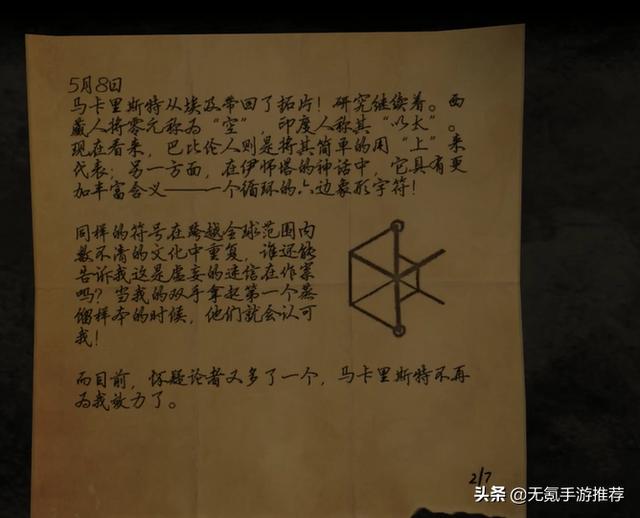 5月8日
马卡里斯特从埃及带回了拓片！研究继续着。西
藏人将零元称为“空”，印度人称其“以太”。
现在看来，巴比伦人则是将其简单的用“上”来
代表；另一方面，在伊师塔的神话中，它具有更
加丰富含义——一个循环的六边象形字符！
同样的符号在跨越全球范围内
数不清的文化中重复，谁还能
告诉我这是虚妄的迷信在作祟
吗？当我的双手拿起第一个蒸
馏样本的时候，他们就会认可
我！
而目前，怀疑论者又多了一个，马卡里斯特不再
为我效力了。
2/7
头条 @无氪手游推荐